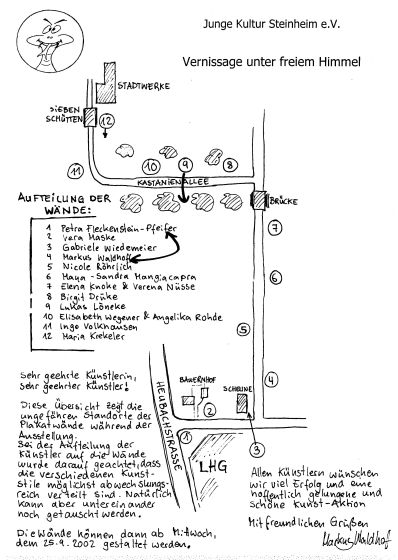 Junge Kultur Steinheim e.V.
Vernissage unter freiem Himmel
STADTWERKE
SIEBEN
SCHÜTTEN
12
11
10
9
8
KASTANIENALLEE
BRÜCKE
AUFTEILUNG DER
WÄNDE:
1 Petra Fleckenstein-Pfeifer
2 Vera Maske
3 Gabriele Wiedemeier
4 Markus Waldhoff
5 Nicole Röhrlich
6 Maya-Sandra Mangiacapra
7 Elena Knoke & Verena Nüsse
8 Birgit Drüke
9 Lukas Löneke
10 Elisabeth Wegener & Angelika Rohde
11 Ingo Volkhausen
12 Maria Krekeler
7
6
5
4
HEUBACHSTRASSE
BAUERNHOF
SCHEUNE
2
1
3
LHG
Sehr geehrte Künstlerin,
sehr geehrter Künstler!
Diese Übersicht zeigt die
ungefähren Standorte der
Plakatwände während der
Ausstellung.
Bei der Aufteilung der
Künstler auf die Wände
wurde darauf geachtet, dass
die verschiedenen Kunst-
stile möglichst abwechslungs-
reich verteilt sind. Natürlich
kann aber untereinander
noch getauscht werden.
Die Wände können dann ab Mittwoch,
dem 25.9.2002 gestaltet werden.
Allen Künstlern wünschen
wir viel Erfolg und eine
hoffentlich gelungene und
schöne Kunst-Aktion
Mit freundlichen Grüßen
Markus Waldhof